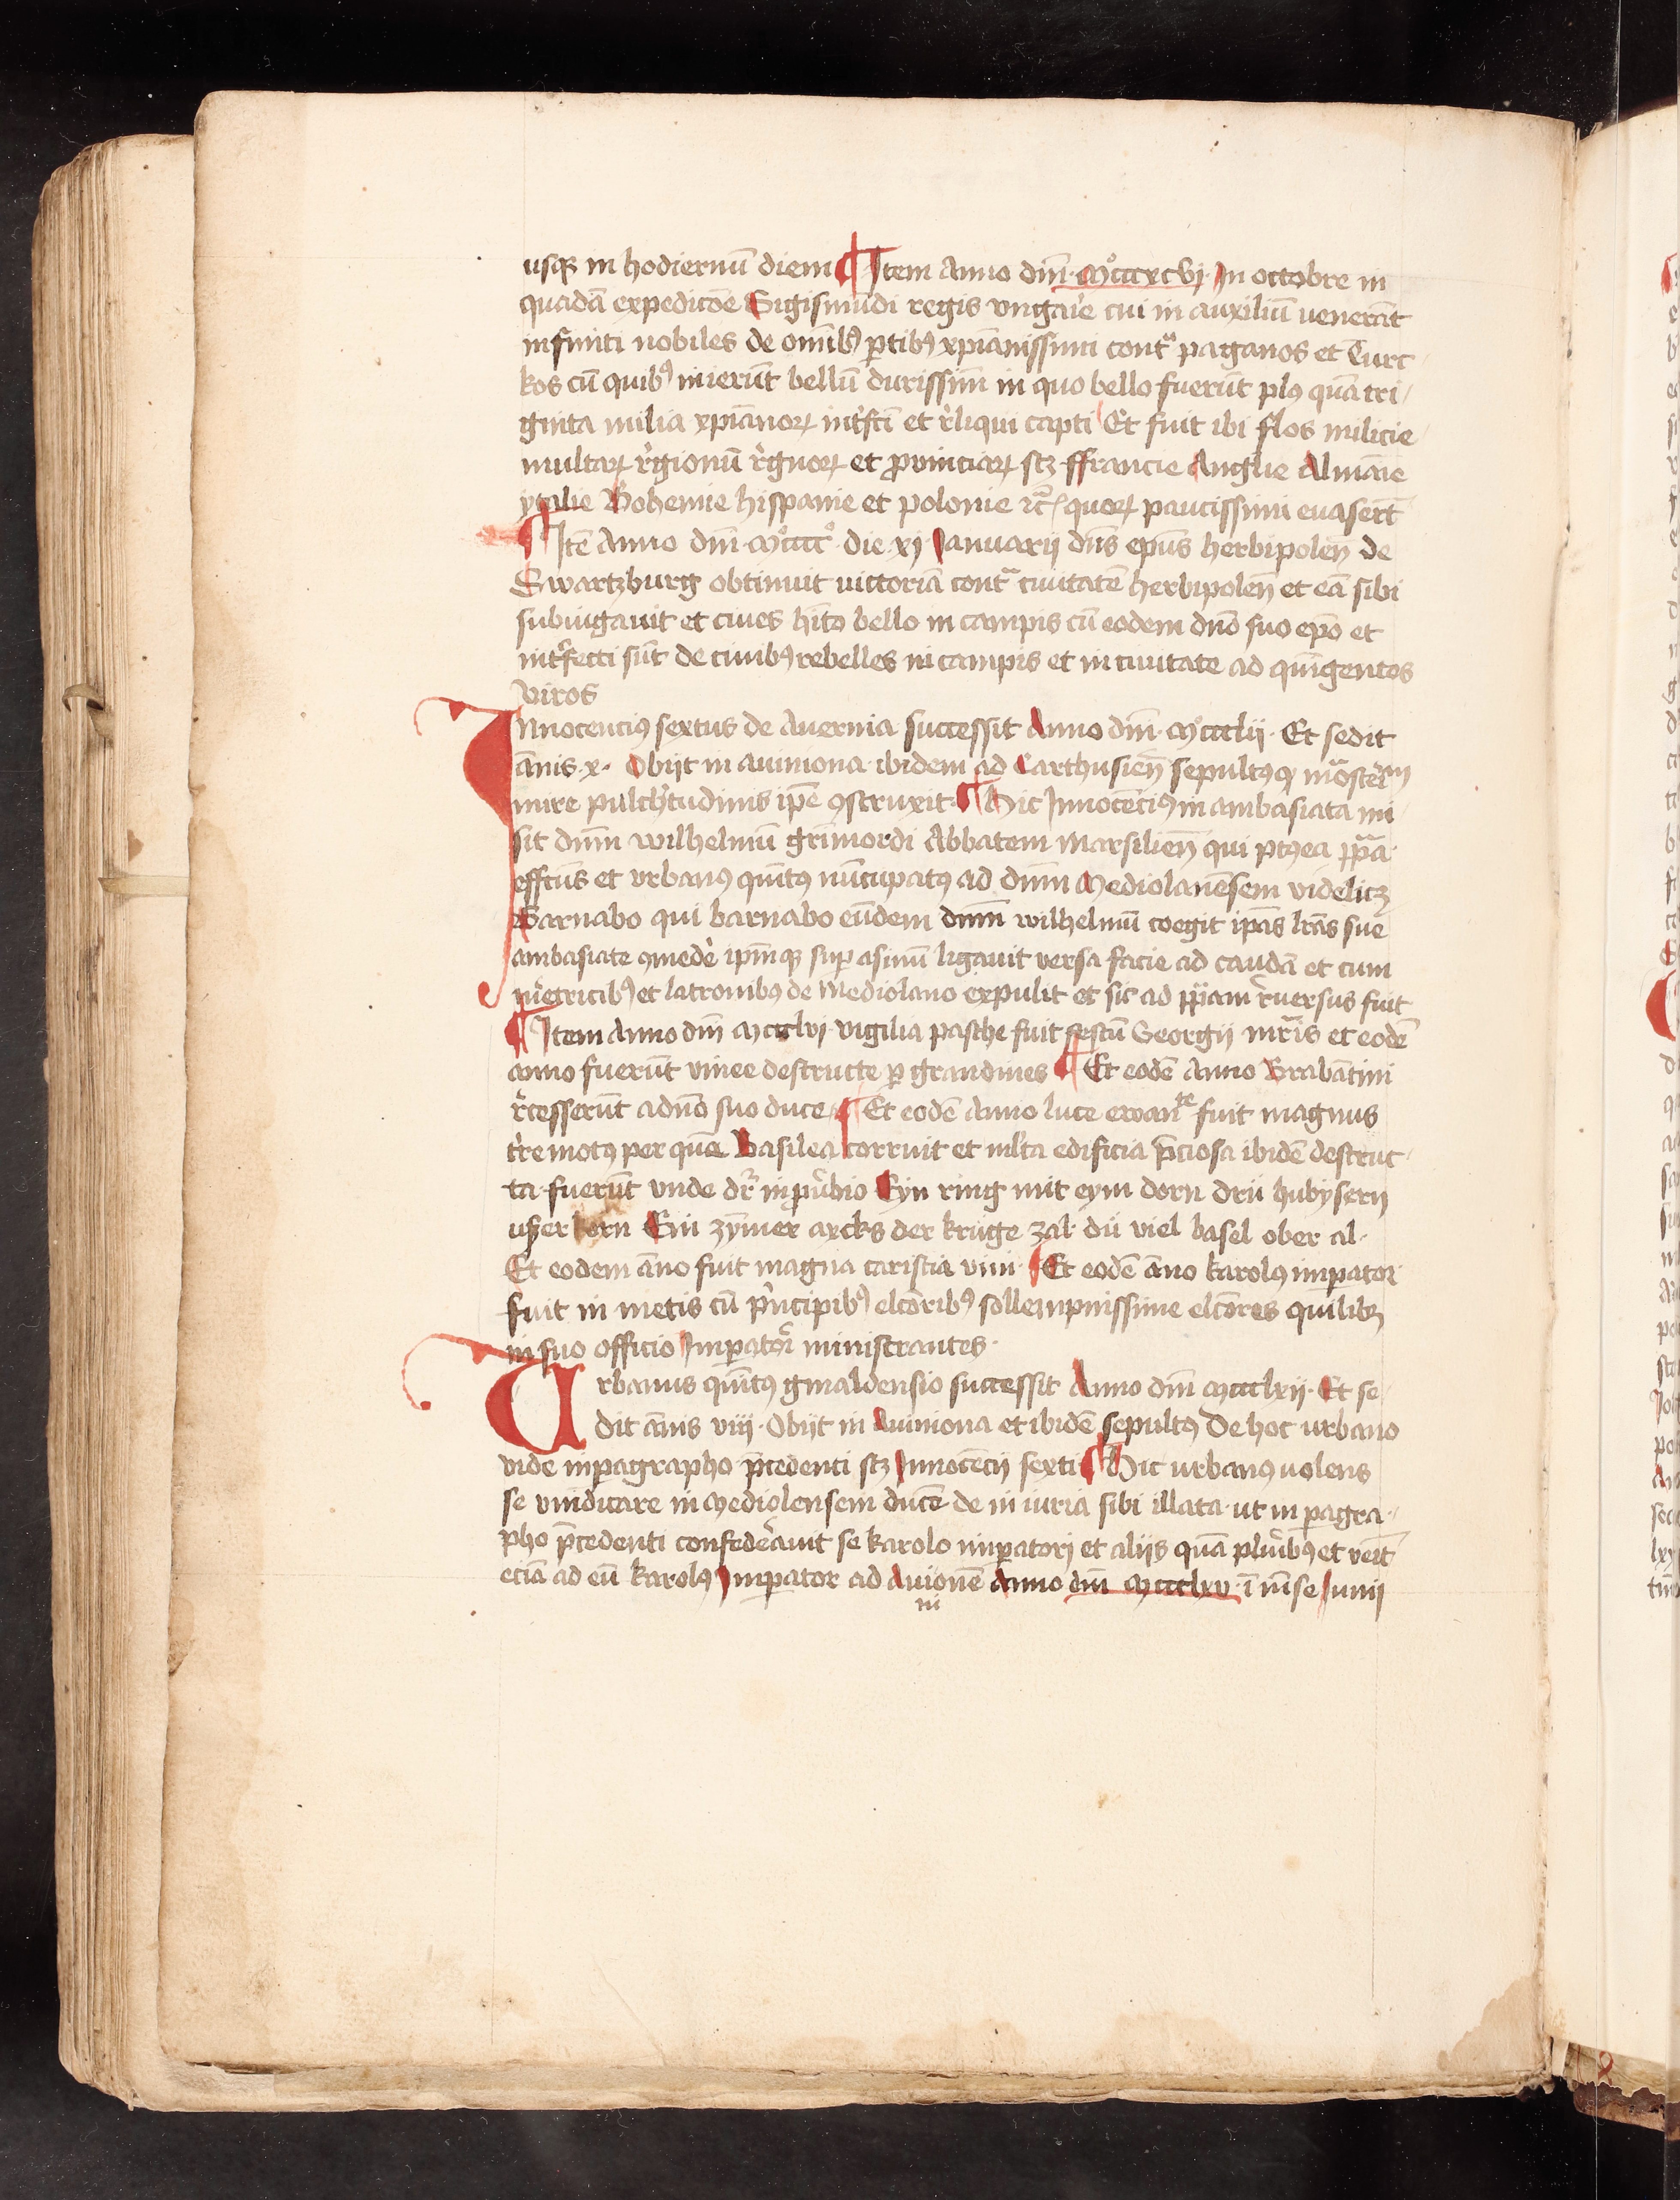 usqȝ in hodiernū diem ¶ Item Anno dm̄ · Mͦcccxcvj · In octobre in
quadā expedicōe Sigismūdi regis vngaīe cui in auxiliū venerāt
infiniti nobiles de om̄ibꝰ ꝑtibꝰ xp̄ianissimi contᵃ paganos et Turc
kos cū quibꝰ inierūt bellū durissim̄ in quo bello fuerūt plꝰ quā tri/
ginta milia xp̄ianoꝝ int̄fcī et r̄liqui capti Et fuit ibi flos milicie
multaꝝ r̄gionū r̄gnoꝝ et ꝓvinciaꝝ scȝ ffrancie Anglie Almāie
ytalie Bohemie hispanie et polonie ꝛc̄ quoꝝ paucissimi euasert̄
¶ Itē Anno dm̄ · Mͦccccͦ · die xj Januarij dn̄s ep̄us herbipoleñ de
Swartzburg obtinuit victoriā contᵃ ciuitatē herbipoleñ et eā sibi
subiugauit et ciues hīto bello in campis cū eodem dn̄o suo ep̄o et
int̄fecti sūt de ciuibꝰ rebelles in campis et in ciuitate ad quīgentos
viros
Innocenciꝰ sextus de Auernia successit Anno dm̄ · Mͦccclii · Et sedit
ānis · x · Obijt in auiniona ibidem ad Carthusieñ sepultꝰ qͥ mᵒnastēiū
mire pulchͥtudinis ip̄e ꝯstruxit · ¶ Hic Innocēciꝰ in ambasiata mi
sit dnm̄ wilhelmū grīmordi Abbatem Marsilieñ qui ptꝰea ppᵃ
effctūs et vrbanꝰ quītꝰ nūcupatꝰ ad dnm̄ Mediolanēsem videlicȝ
Barnabo qui barnabo eūdem dnm̄ wilhelmū coegit ip̄as lrās sue
ambasiate ꝯmede᷑ ip̄mqȝ suꝑ asinū ligauit versa facie ad caudā et cum
me᷑tricibꝰ et latronibꝰ de Mediolano expulit et sic ad ppᵃm r̄uersus fuit
¶ Item Anno dm̄ Mccclvj vigilia pasche fuit festū Georgij mr̄is et eodē
anno fuerūt vinee destructe ꝑ grandines ¶ Et eodē Anno Brabātini
r̄cesserūt a dn̄o suo duce ¶ Et eodē Anno luce ewanᵗᵉ fuit magnus
tr̄e motꝰ per quē Basilea corruit et ml̄ta edificia p̄ciosa ibidē destruc
ta fuerūt vnde dr̄ in ꝓu̾bio Eyn ring mit eym dorn drii hubysern
uszer korn Ein zȳmer axcks der krüge zal · dü viel basel ober al ·
Et eodem āno fuit magna caristia vini · ¶ Et eodē āno karolꝰ imꝑator
fuit in metis cū pͥncipibꝰ elcōribꝰ sollempnissime elcōres quilibȝ
in suo officio Imꝑatori ministrantes ·
Urbanus quītꝰ gmaldensio successit Anno dm̄ Mccclxij · Et se
dit ānis viij · Obijt in Auiniona et ibidē sepultꝰ De hoc urbano
vide in ꝑagrapho p̄cedenti scȝ Innocēcij sexti ¶ Hic urbanꝰ volens
se vindicare in Mediolensem ducē de in iuria sibi illata · ut in ꝑagra
pho p̄cedenti confede᷑auit se karolo imꝑatorj et aliis quā plu̾ibꝰ et veīt
eciā ad eū karolꝰ Imꝑator ad Auionē Anno dm̄ Mccclxv · ī mēse Junij
ni